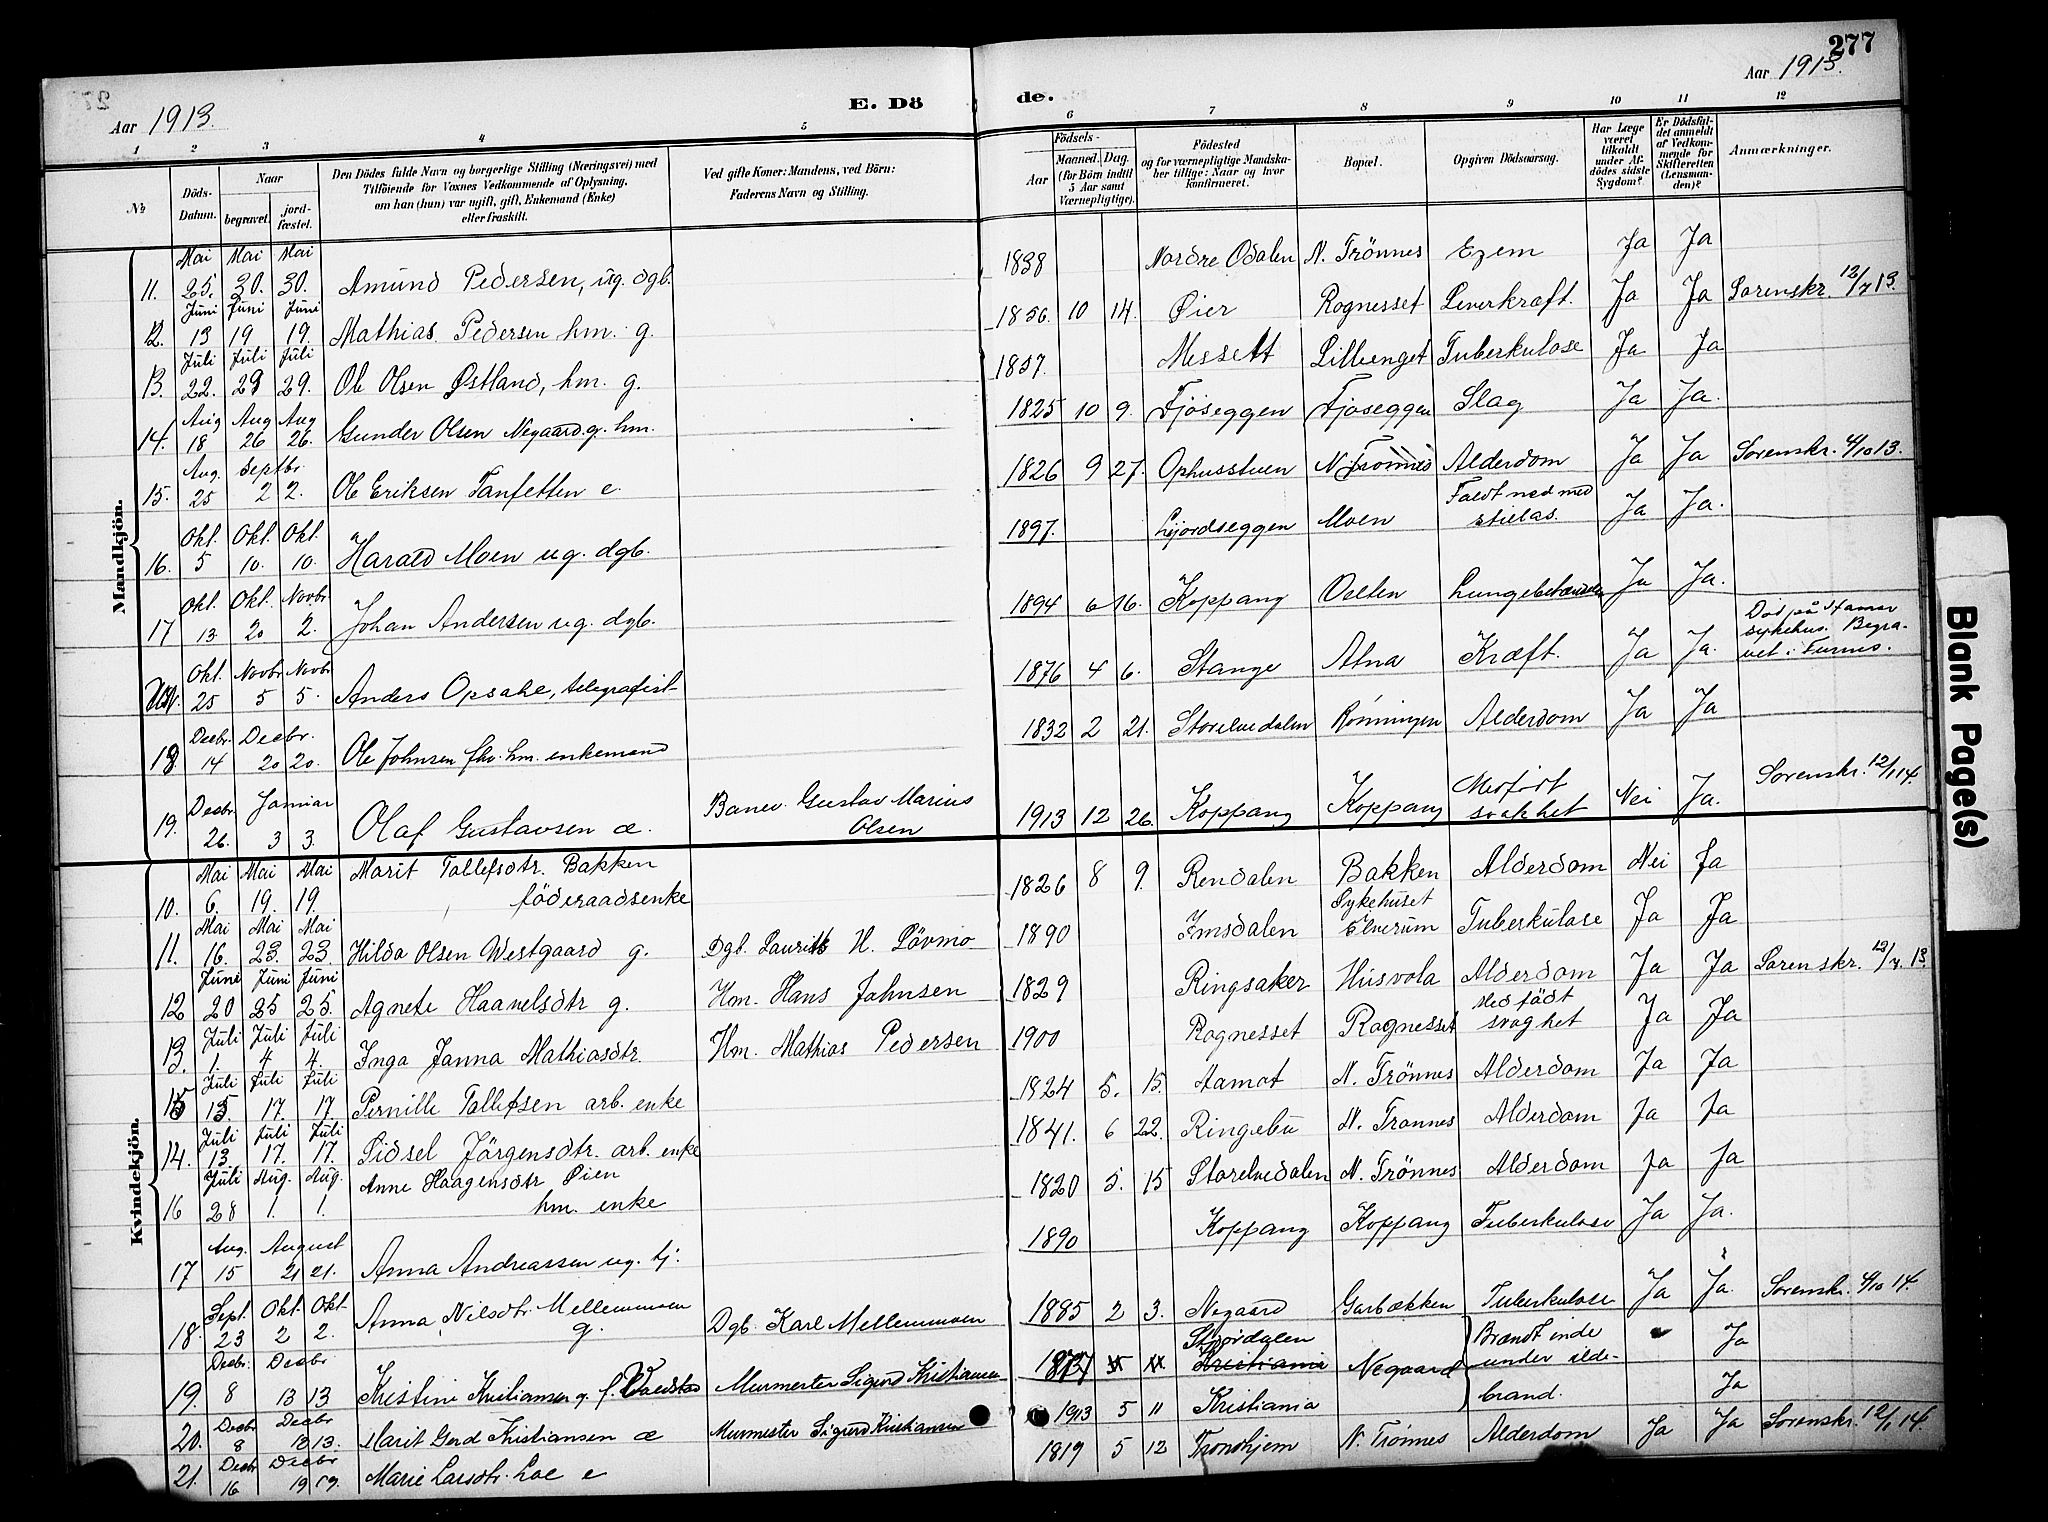 277
Aar 1913.
E. Döde.
Aar 1913.
1 2 3 4 5 6 7 8 9 10 11 12
№
Döds-Datum.
Naar
begravet.
jordfæstet.
Den Dödes fulde Navn og borgerlige Stilling (Næringsvei) med
Tilföiende for Voxnes Vedkommende af Oplysning,
om han (hun) var ugift, gift, Enkemand (Enke)
eller fraskilt.
Ved gifte Koner: Mandens, ved Börn:
Faderens Navn og Stilling.
Födsels-
Aar
Maaned. Dag.
(for Börn indtil
5 Aar samt
Værnepligtige).
Födested
og for værnepligtige Mandska-
ber tillige: Naar og hvor
konfirmeret.
Bopæl.
Opgiven Dödsaarsag.
Har Læge
været
tilkaldt
under Af-
dödes sidste
Sygdom?
Er Dödsfal-
det anmeldt
af Vedkom-
mende for
Skifteretten
(Lensman-
den)?
Anmærkninger.
Mandkjön.
11. Mai 25. Mai 30. Mai 30. Amund Pedersen, ug. dgb. 1838 Nordre Odalen N. Trönnes Ezem Ja Ja
12. Juni 13 Juni 19 Juni 19. Mathias Pedersen hm. g. 1856. 10 14. Øier Rognesset Leverkraft. Ja Ja Sorenskr. 12/7 13.
13. Juli 22. Juli 29 Juli 29. Ole Olsen Østland, hm. g. 1857. Messelt Lilleenget Tuberkulose Ja Ja
14. Aug 18 Aug 26 Aug 26. Gunder Olsen Negaard. g. hm. 1825 10 9. Fjöseggen Fjoseggen Slag Ja Ja.
15. Aug. 25 Septbr. 2 2. Ole Eriksen Tanfetten e. 1826 9 27. Ophusstuen N. Trönnes Alderdom Ja Ja Sorenskr. 4/10 13.
16. Okt. 5 Okt. 10. Okt. 10. Harald Moen ug. dgb. 1897. Moen Faldt ned med Ja Ja.
17 Okt. 13. Okt. 20 Novbr 2. Johan Andersen ug. dgb. 1894 6 16. Koppang Lungebetændelse Ja Ja.
Okt. 25 Novbr 5 Novbr 5. Anders Opsahl, telegrafist 1876 4 6. Stange Atna Kræft. Ja Ja. Död på Hamar
sykehus. Begra-
vet i Furnes.
18. Decbr. 14 Decbr. 20 20. Ole Johnsen fhv. hm. enkemand 1832 2 21. Storelvedalen Rönningen Alderdom Ja Ja
19. Decbr 26. Januar 3 3. Olaf Gustavsen æ. Banev. Gustav Marius
Olsen 1913 12 26. Koppang Koppang Medfödt
svakhet Nei Ja. Sorenskr. 12/1 14.
Kvindekjön.
10. Mai 6. Mai 19. Mai 19. Marit Tollefsdtr. Bakken
föderaadsenke 1826 8 9. Rendalen Bakken Alderdom Nei Ja
11. Mai 16. Mai 23. Mai 23 Hilda Olsen Westgaard g. Dgb. Laurits H. Lövmo 1890 Imsdalen Sykehuset
Elverum Tuberkulose Ja Ja
12 Juni 20 Juni 25 Juni 25. Agnete Haavelsdtr g. Hm. Hans Johnsen 1829 Ringsaker Husvola Alderdom Ja Ja Sorenskr. 12/7 13.
13. Juli 1. Juli 4 Juli 4. Inga Janna Mathiasdtr. Hm. Mathias Pedersen 1900 Rognesset Rognesset Medfödt
svaghet Ja Ja
15 Juli 15. Juli 17. Juli 17. Pernille Tollefsen arb. enke 1824 5. 15. Aamot N. Trönnes Alderdom Ja Ja
14. Juli 13 Juli 17. Juli 17. Sidsel Jörgensdtr. arb. enke 1841. 6 22. Ringebu N. Trønnes Alderdom Ja Ja
16 Juli 28 Aug. 1. Aug. 1. Anne Haagensdtr Øien
hm. enke 1820 5. 15 Storelvedalen N. Trönnes Alderdom Ja Ja
17 Aug. 15 August 21 21. Anna Andreassen ug. tj. 1890 Koppang Koppang Tuberkulose Ja Ja.
18. Sept. 23 Okt. 2 Okt. 2. Anna Nilsdtr. Mellemmoen
g. Dgb. Karl Mellemmoen 1885 2 3. Negaard Garbækken Tuberkulose Ja Ja. Sorenskr. 4/10 14.
19. Decbr. 8 Decbr 13 13 Kristine Kristiansen g. f. Murmester Sigurd Kristiansen Stjørdalen
Kristiania Negaard Brændt inde
under ilde-
brand. Ja
20. Decbr 8 Decbr 13 13. Marit Gerd Kristiansen æ Murmester Sigurd Kristiansen 1913 5 11 Kristiania Ja
21. Decbr 16 Decbr 19 19. Marie Larsdtr. Loe e 1819 5 12 Trondhjem N. Trønnes Alderdom Ja Ja Sorenskr. 12/1 14.
Blank Page(s)